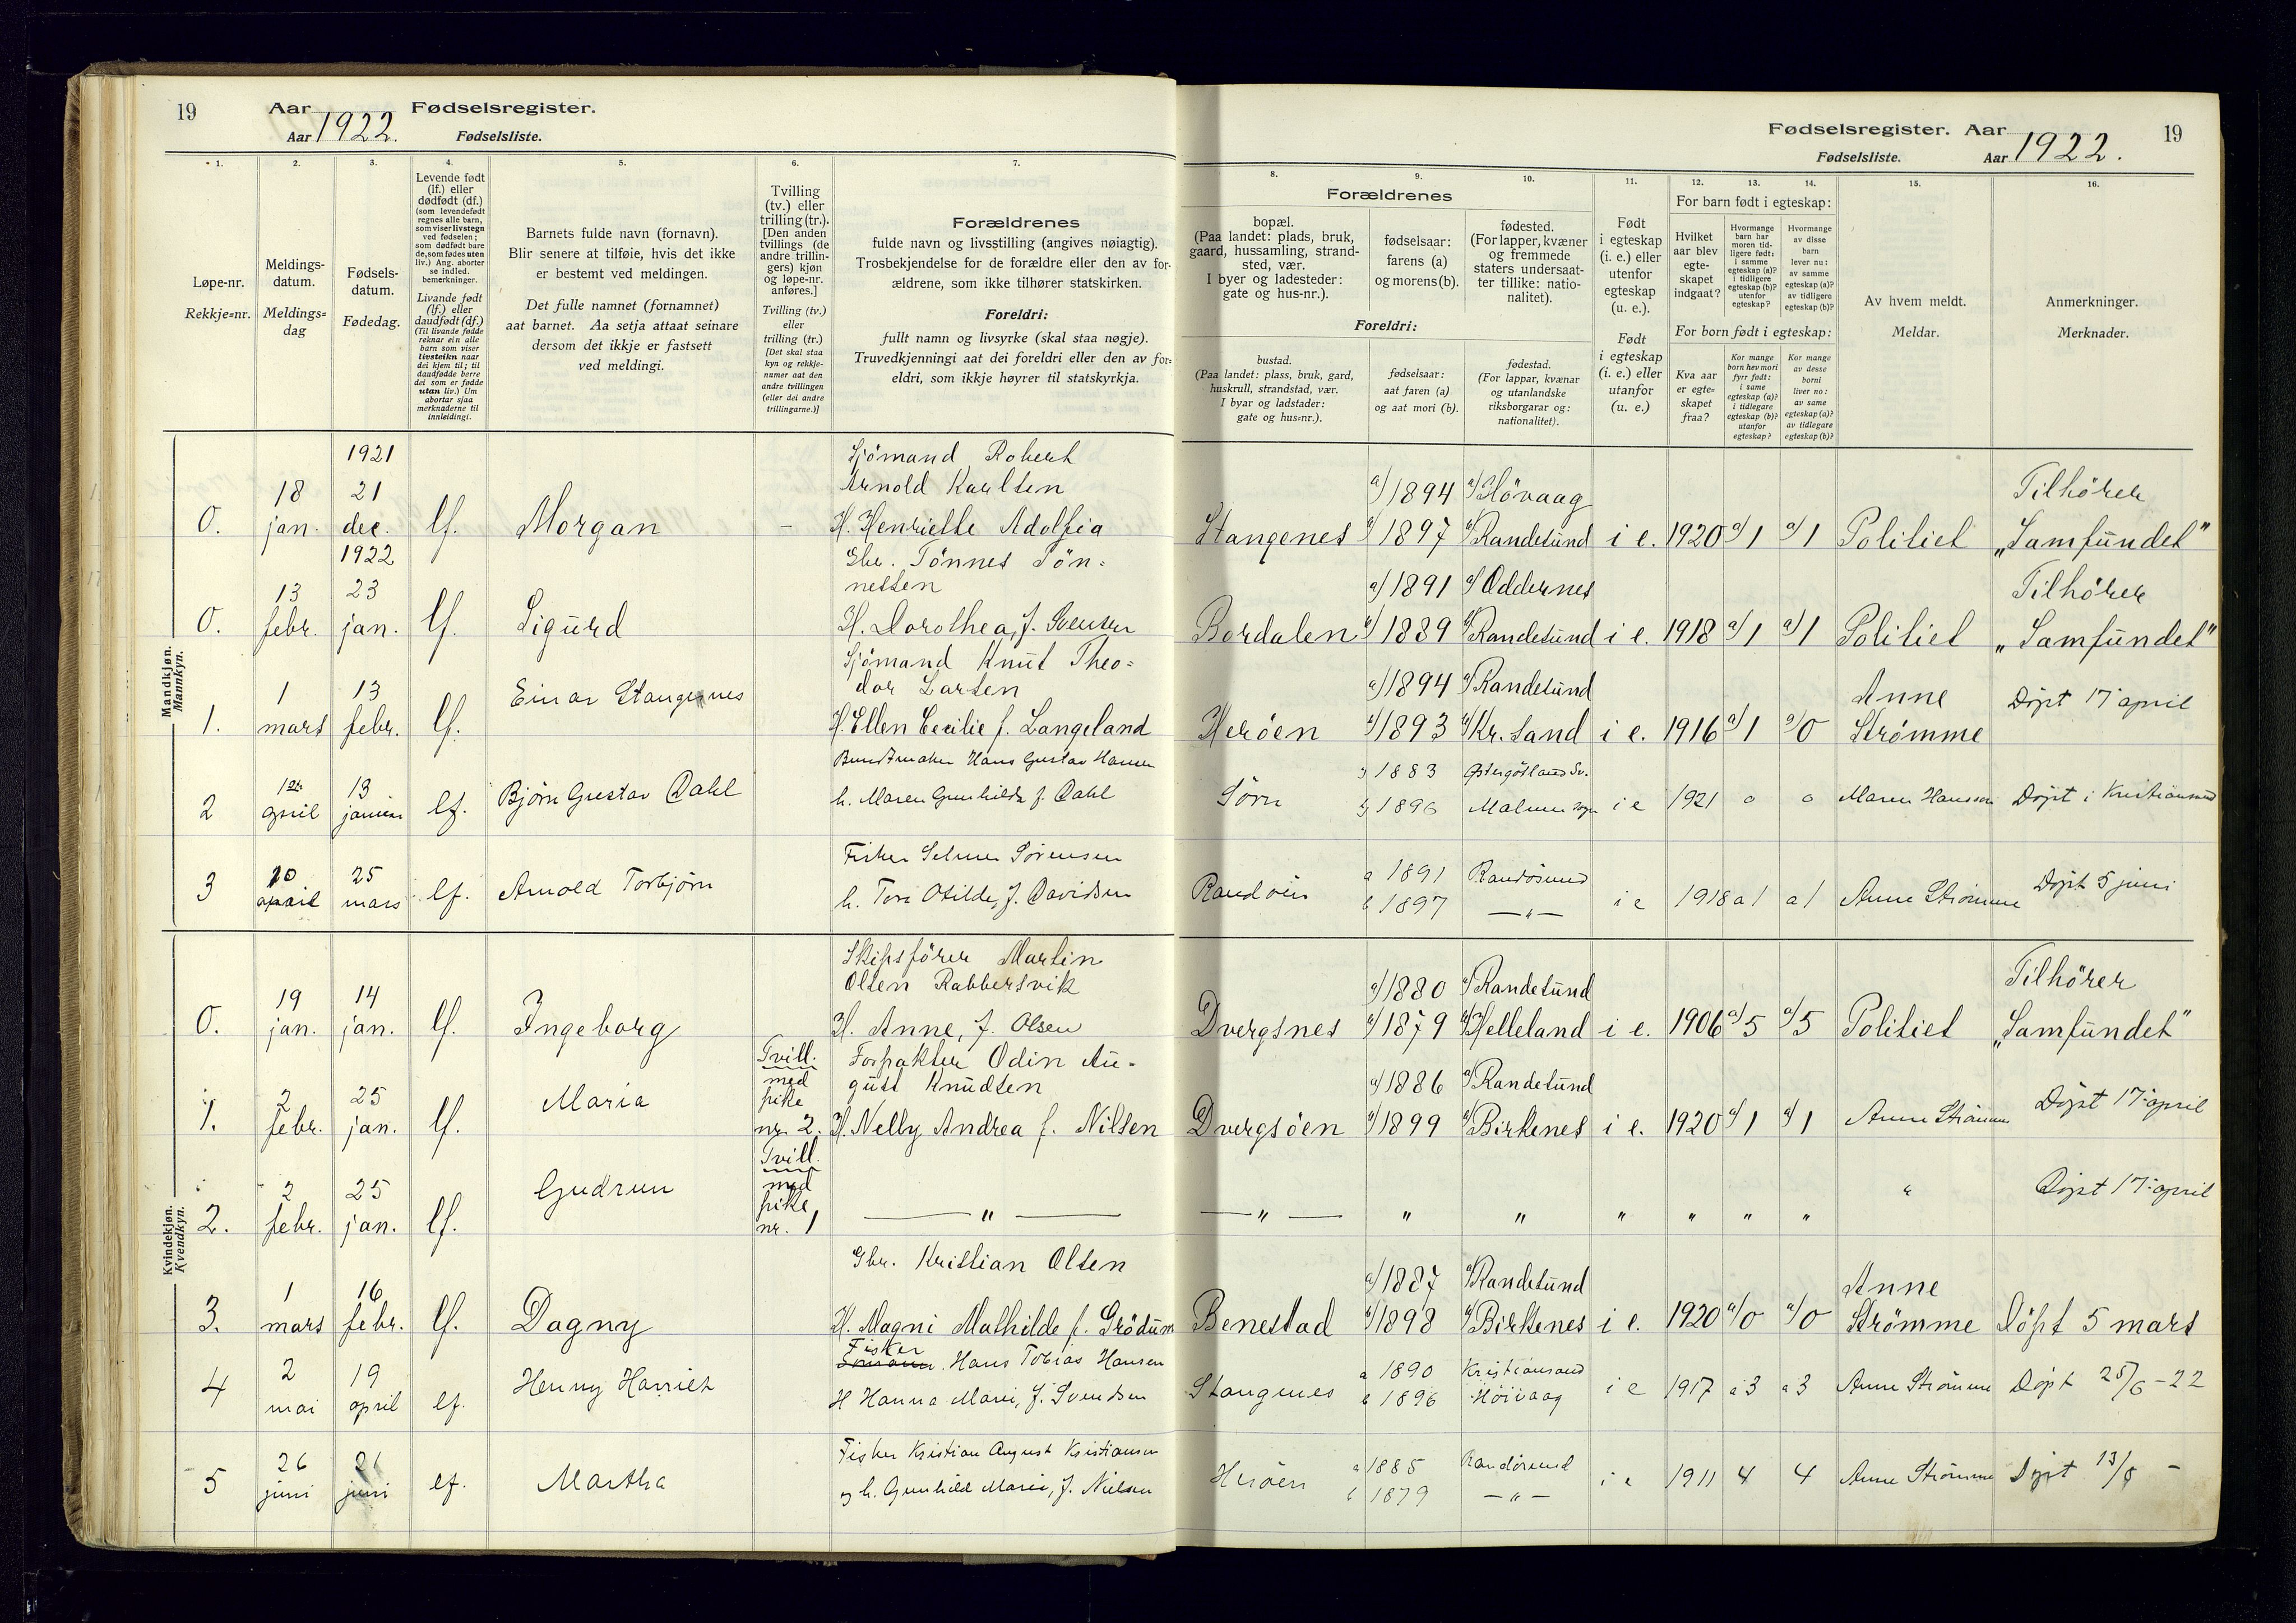 19
Aar 1922. Fødselsregister.
Aar
Fødselsliste.
1.
2.
3.
4.
5.
6.
7.
Løpe-nr.
Rekkje-nr.
Meldings-
datum.
Meldings-
dag
Fødsels-
datum.
Fødedag.
Levende født
(lf.) eller
dødfødt (df.)
(som levendefødt
regnes alle barn,
som viser livstegn
ved fødselen;
som dødfødt bare
de, som fødes uten
liv.) Ang. aborter
se indled.
bemerkninger.
Livande født
(lf.) eller
daudfødt (df.)
(Til livande fødde
reknar ein alle
barn som viser
livsteikn naar
dei kjem til; til
daudfødde berre
dei som er fødde
utan liv.) Um
abortar sjaa
merknaderne til
innleidingi.
Barnets fulde navn (fornavn).
Blir senere at tilføie, hvis det ikke
er bestemt ved meldingen.
Det fulle namnet (fornamnet)
aat barnet. Aa setja attaat seinare
dersom det ikkje er fastsett
ved meldingi.
Tvilling
(tv.) eller
trilling (tr.).
[Den anden
tvillings (de
andre trillin-
gers) kjøn
og løpe-nr.
anføres.]
Tvilling (tv.)
eller
trilling (tr.)
[Det skal staa
kyn og rekkje-
numer aat den
andre tvillingen
(eller dei andre
trillingarne.)]
Forældrenes
fulde navn og livsstilling (angives nøiagtig).
Trosbekjendelse for de forældre eller den av for-
ældrene, som ikke tilhører statskirken.
Foreldri:
fullt namn og livsyrke (skal staa nøgje).
Truvedkjenningi aat dei foreldri eller den av for-
eldri, som ikkje høyrer til statskyrkja.
Mandkjøn.
Mannkyn.
1921
0.
18
jan.
21
dec.
lf.
Morgan
-
Sjömand Robert
Arnold Karlsen
H. Henriette Adolfia
1922
0.
13
febr.
23
jan.
lf.
Sigurd
Gbr. Tönnes Tön-
nessen
H. Dorothea, f. Svensen
1.
1
mars
13
febr.
lf.
Einar Stangenes
Sjömand Knut Theo-
dor Larsen
H. Ellen Cecilie f. Langeland
2
1st
april
13
januar
lf.
Bjørn Gustav Dahl
Buntmaker Hans Gustav Hansen
h. Maren Gunhilde f. Dahl
3
20
april
25
mars
lf.
Arnold Torbjørn
Fisker Selmer Sørensen
h. Tora Otilde, f. Davidsen
Kvindekjøn.
Kvendkyn.
0.
19
jan.
14
jan.
lf.
Ingeborg
Skipsförer Martin
Olsen Rabbersvik
H. Anne, f. Olsen
1.
2
febr.
25
jan.
lf.
Maria
Tvill.
med
pike
nr. 2.
Forpakter Odin Au-
gust Knudsen
H. Nelly Andrea f. Nilsen
2.
2
febr.
25
jan.
lf.
Gudrun
Tvill.
med
pike
nr. 1
— " —
3.
1
mars
16
febr.
lf.
Dagny
Gbr. Kristian Olsen
H. Magni Mathilde f. Grödum
4
2
mai
19
april
lf.
Henny Harriet
Fisker
Hans Tobias Hansen
H Hanna Marie, f. Svendsen
5
26
juni
21
juni
lf.
Martha
Fisker Kristian August Kristiansen
og h. Gunhild Marie, f. Nielsen
Fødselsregister. Aar 1922.
19
Fødselsliste.
Aar
8.
9.
10.
11.
12.
13.
14.
15.
16.
Forældrenes
bopæl.
(Paa landet: plads, bruk,
gaard, hussamling, strand-
sted, vær.
I byer og ladesteder:
gate og hus-nr.).
fødselsaar:
farens (a)
og morens (b).
fødested.
(For lapper, kvæner
og fremmede
staters undersaat-
ter tillike: natio-
nalitet).
Foreldri:
bustad.
(Paa landet: plass, bruk, gard,
huskrull, strandstad, vær.
I byar og ladstader:
gate og hus-nr.).
fødselsaar:
aat faren (a)
og aat mori (b).
fødestad.
(For lappar, kvænar
og utanlandske
riksborgarar og:
nationalitet).
Født
i egteskap
(i. e.) eller
utenfor
egteskap
(u. e.).
Født
i egteskap
(i. e.) eller
utanfor
(u. e.)
For barn født i egteskap:
Hvilket
aar blev
egte-
skapet
indgaat?
Hvormange
barn har
moren tid-
ligere født:
i samme
egteskap (a)?
i tidligere
egteskap (b)?
utenfor
egteskap?
Hvormange
av disse
barn
lever nu:
av samme
egteskap (a)?
av tidligere
egteskap (b)?
For born født i egteskap:
Kva aar
er egte-
skapet
fraa?
Kor mange
born hev mori
fyrr født:
i same
egteskap (a)?
i tidlegare
egteskap (b)?
utanfor
egteskap?
Kor mange
av desse
borni
liver no:
av same
egteskap (a)?
av tidlegare
egteskap (b)?
Av hvem meldt.
Meldar.
Anmerkninger.
Merknader.
Stangenes
a) 1894
b) 1897
a) Hövaag
b) Randesund
i e.
1920
a) 1
a) 1
Politiet
Tilhörer
„Samfundet"
Bordalen
a) 1891
b) 1889
a) Oddernes
b) Randesund
i e.
1918
a) 1
a) 1
Politiet
Tilhörer
„Samfundet"
Heröen
a) 1894
b) 1893
a) Randesund
b) Kr.sand
i e.
1916
a) 1
a) 0
Anne
Strømme
Døpt 17 april
Sørn
a) 1883
b) 1896
Østergötland Sv.
Malmen sogn
i e
1921
0
0
Maren Hanssen
Døpt i Kristiansand
Randøen
a 1891
b 1897
Randøsund
— " —
i e
1918
a 1
a 1
Anne Strømme
Døpt 5 juni
Dvergsnes
a) 1880
b) 1879
a) Randesund
b) Helleland
i e.
1906
a) 5
a) 5
Politiet
Tilhörer
„Samfundet"
Dvergsöen
a) 1886
b) 1899
a) Randesund
b) Birkenes
i e.
1920
a) 1
a) 1
Anne Strømme
Døpt 17 april
— " —
"
"
"
"
"
"
"
Døpt 17 april
Benestad
a) 1887
b) 1898
a) Randesund
b) Birkenes
i e.
1920
a) 0
a) 0
Anne
Strømme
Döpt 5 mars
Stangenes
a 1890
b 1896
Kristiansand
Höivaag
i e
1917
a 3
a 3
Anne Strømme
Døpt 25/6 - 22
Herøen
a 1885
b 1879
Randøsund
— " —
i e
1911
4
4
Anne Strømme
Døpt 13/8 -